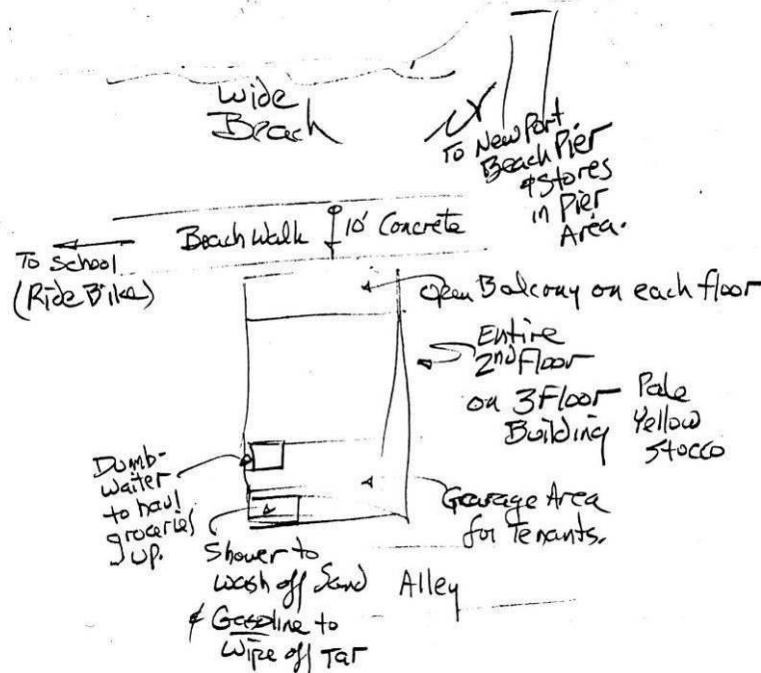 Wide
Beach
To Newport
Beach Pier
& Stores
in Pier
Area.
Beach Walk 10' Concrete
To School
(Ride Bike)
Open Balcony on each floor
Entire
2nd Floor
on 3 Floor
Building
Pale
Yellow
Stocco
Dumb-
waiter
to haul
groceries
up.
Garage Area
for Tenants.
Shower to
wash off Sand
& Gasoline to
Wipe off Tar
Alley